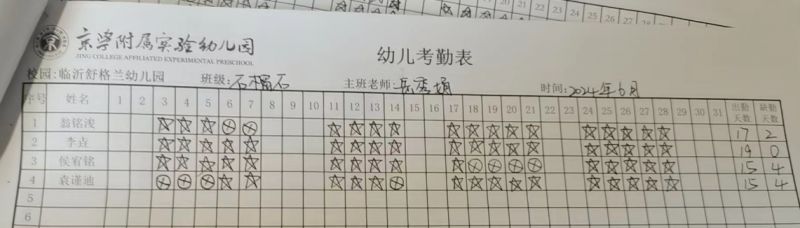 22 23 24 25 26 27 28
京学附属实验幼儿园
JING COLLEGE AFFILIATED EXPERIMENTAL PRESCHOOL
幼儿考勤表
校园:临沂舒格兰幼儿园 班级:石榴石 主班老师: 时间:2024年6月
序号 姓名 1 2 3 4 5 6 7 8 9 10 11 12 13 14 15 16 17 18 19 20 21 22 23 24 25 26 27 28 29 30 31 出勤天数 缺勤天数
1 翁铭浅 17 2
2 李垚 19 0
3 侯宥铭 15 4
4 袁谨迪 15 4
5
6